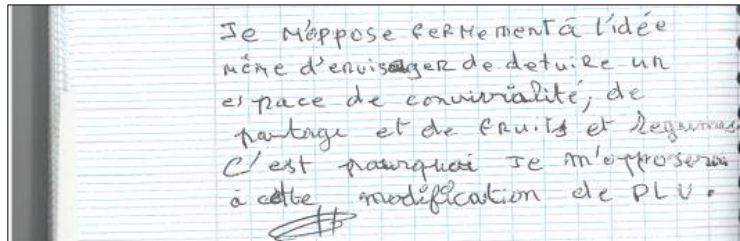 Je m'oppose fermement à l'idée
même d'envisager de detuire un
espace de convivialité, de
partage et de fruits et legumes
C'est pourquoi je m'opposerai
à cette modification de PLU.